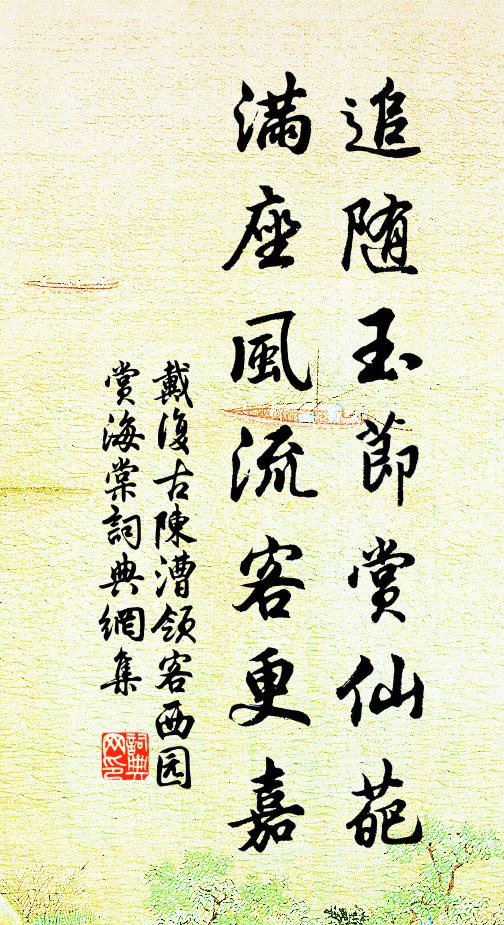 追随玉節賞仙葩
满座風流客更嘉
戴復古陳漕領客西园
賞海棠詞典網集
詞典
网印